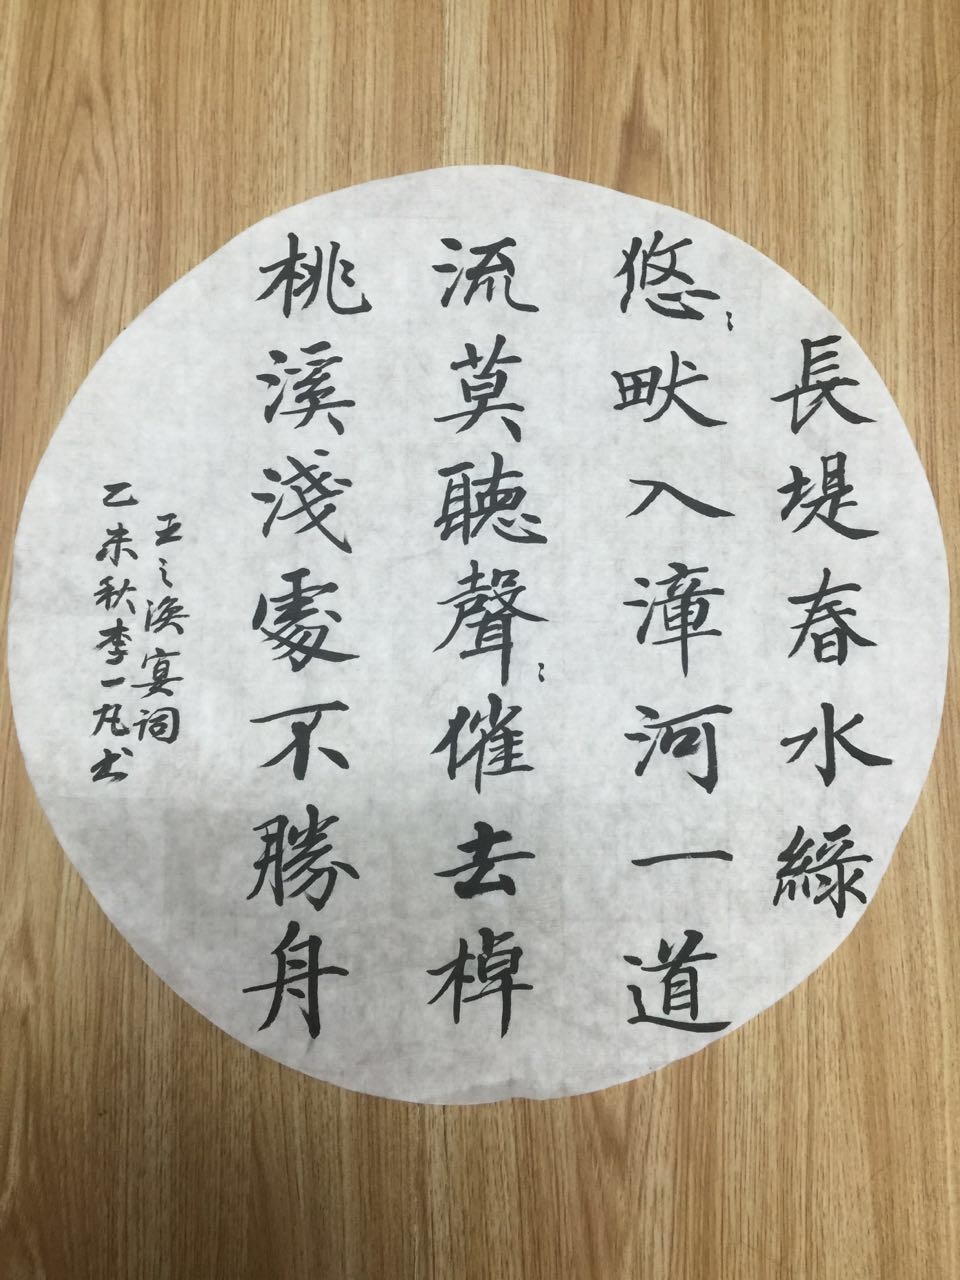 長堤春水綠
悠〻畎入漳河一道
流莫聽聲〻催去棹
桃溪淺處不勝舟
王之渙宴词
乙未秋李一凡书